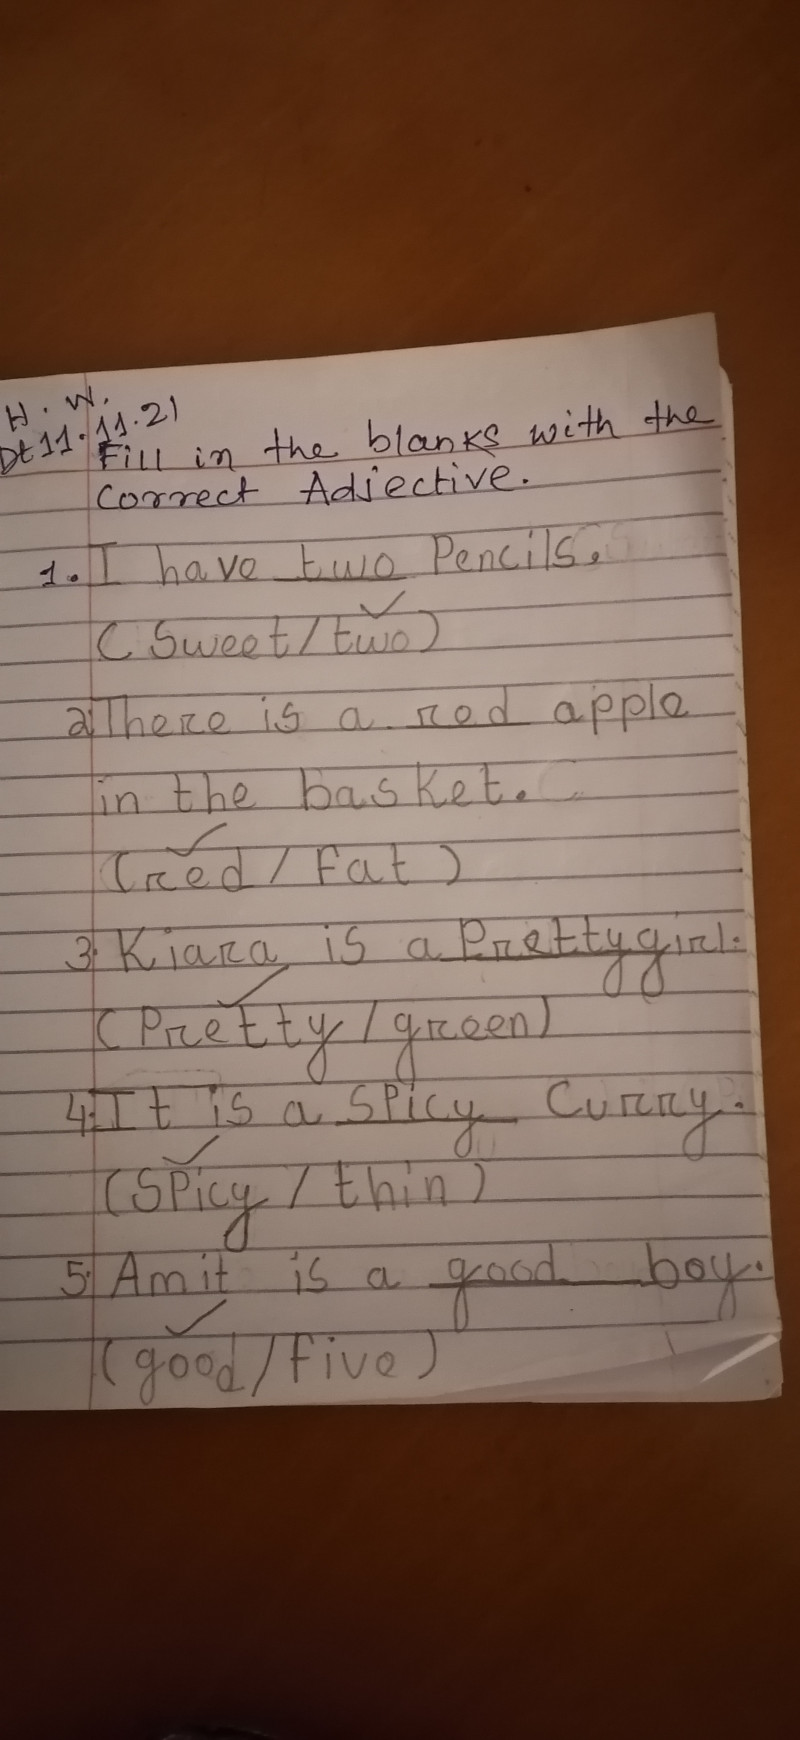 H. W.
Dt 11.11.21
Fill in the blanks with the
Correct Adjective.
1. I have two Pencils.
(Sweet/two)
2. There is a red apple
in the basket.
(red/Fat)
3. Kiara is a Pretty girl.
(Pretty/green)
4. It is a SPicy Curry.
(SPicy/thin)
5. Amit is a good boy.
(good/five)